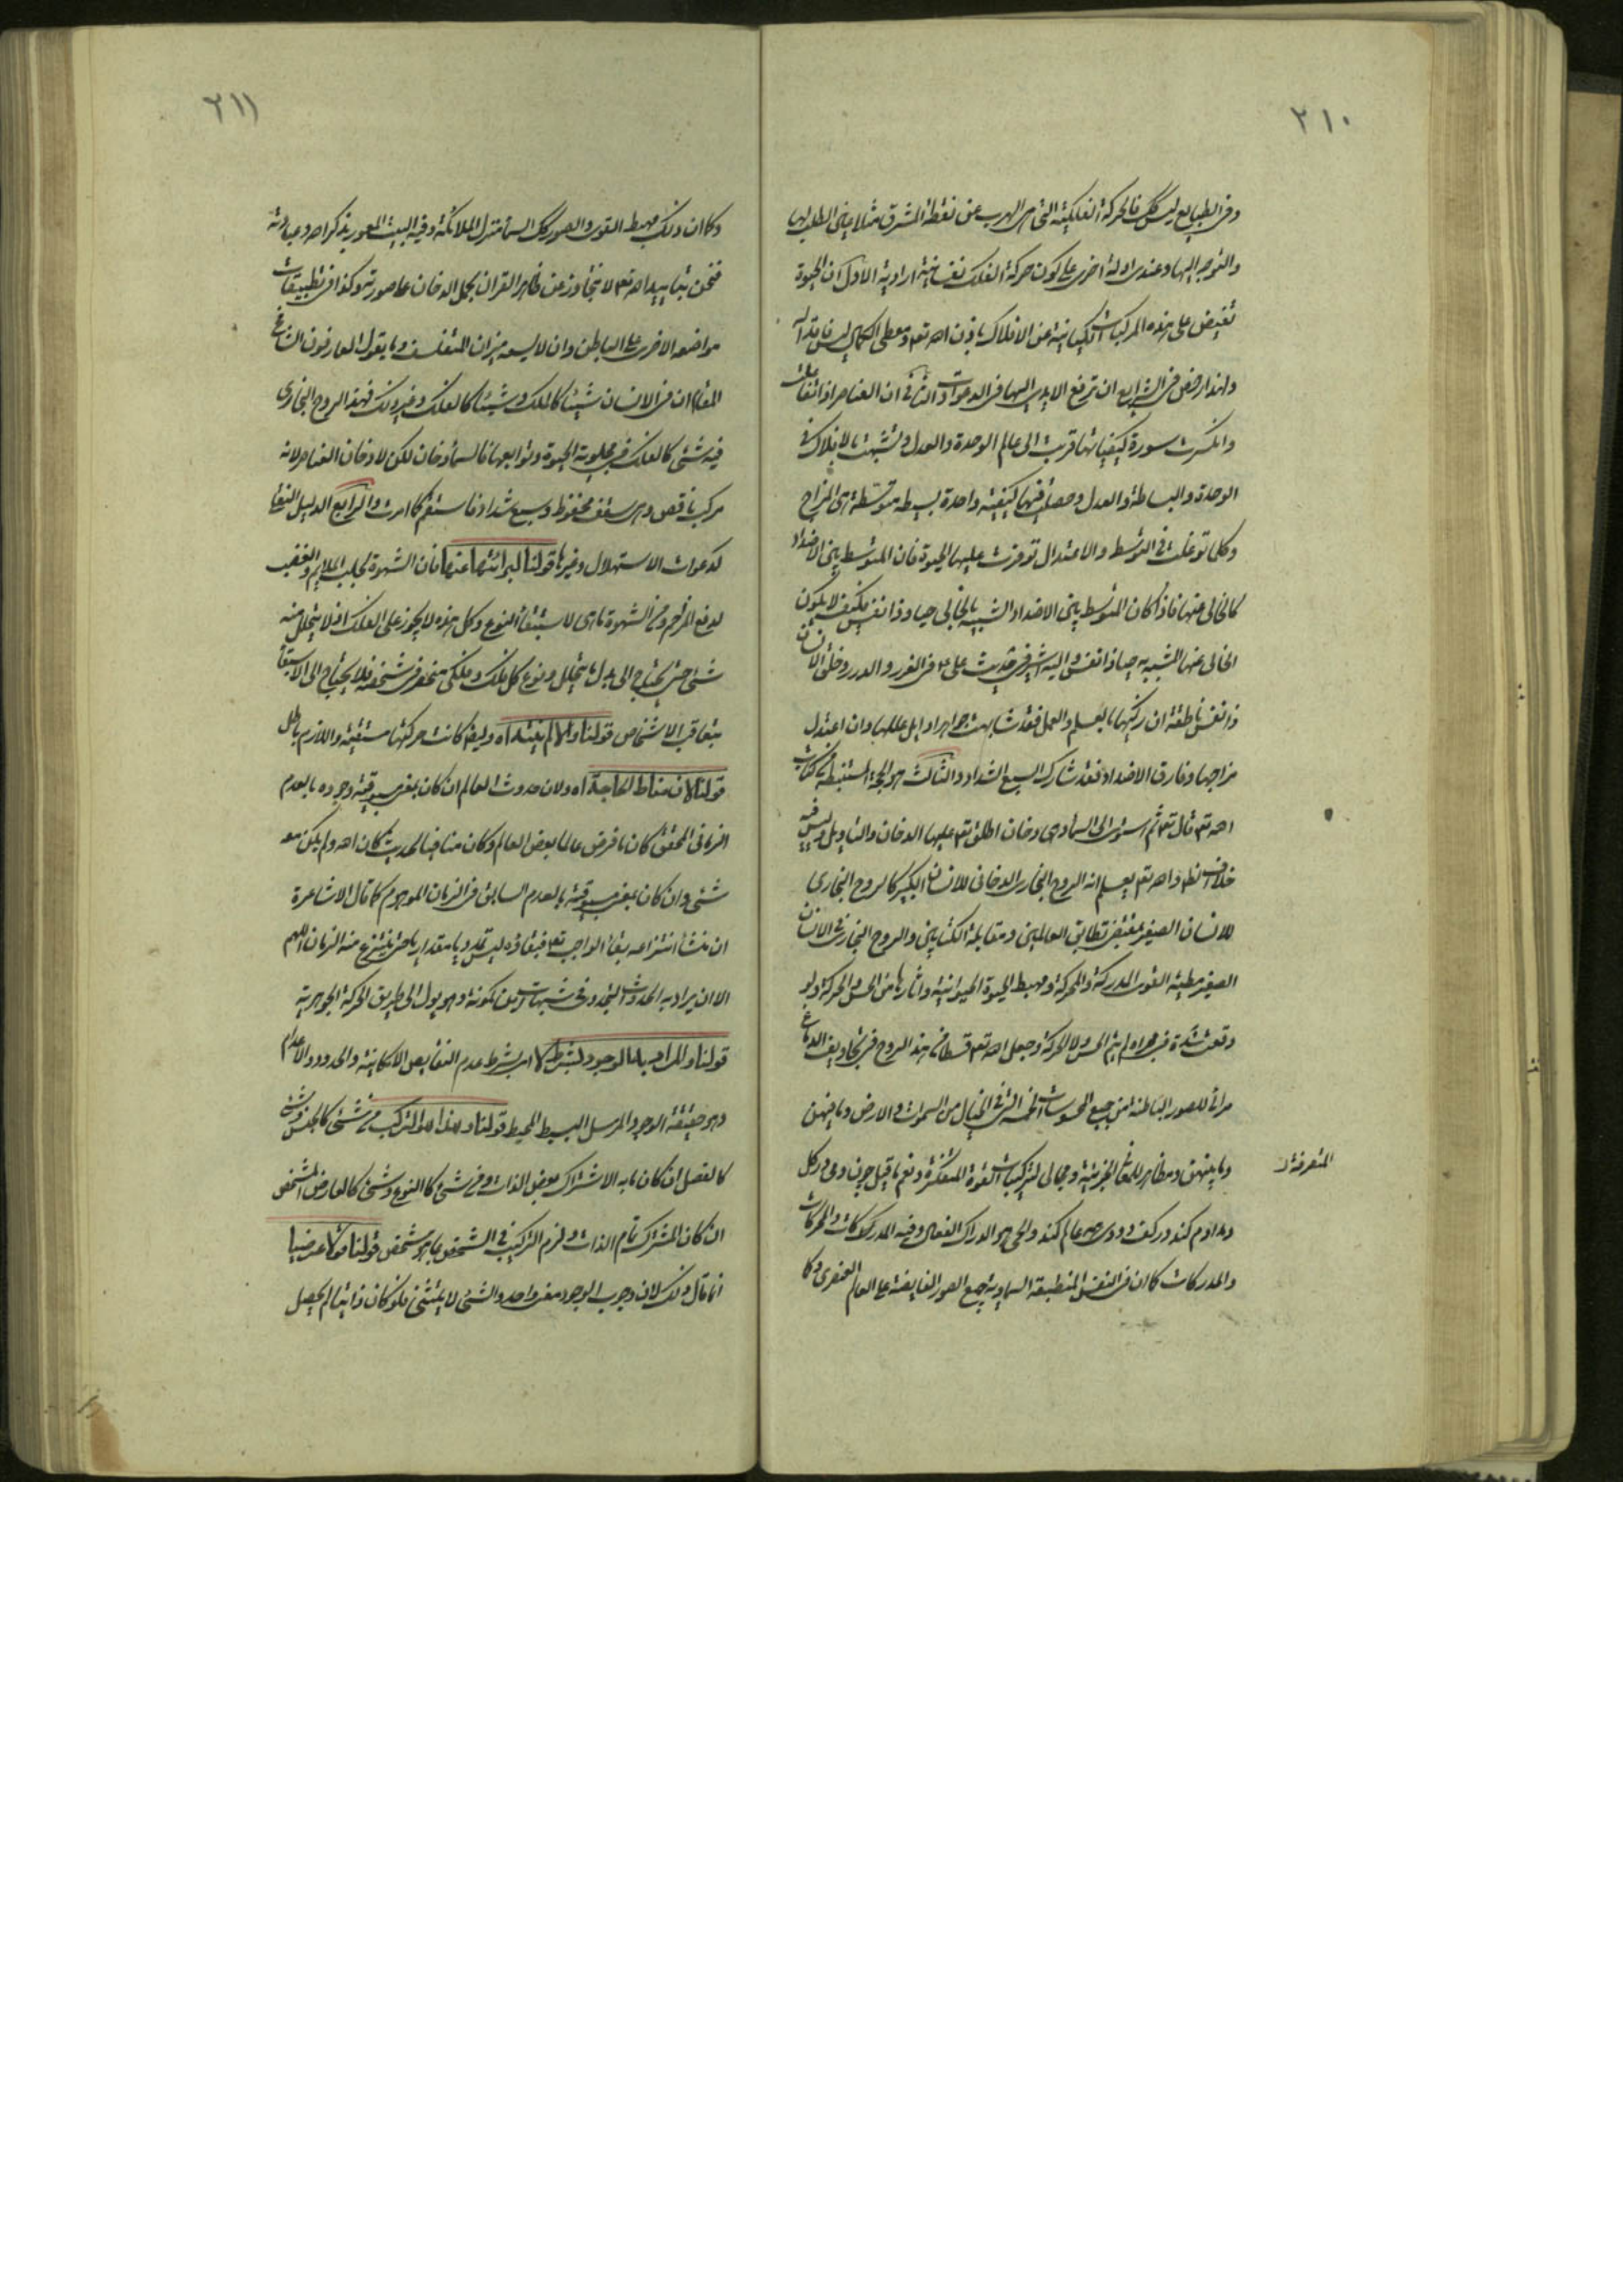 ٢١٠
وفى الطبايع ليس كك فالحركة الفلكية التى هى الهرب عن نقطة المشرق مثلا عين الطلب لها
والتوجه اليها وعندى ادلة اخرى على كون حركة الفلك نفسانية ارادية الاول ان الحيوة
تفيض على هذه المركبات الكيانية من الافلاك باذن اهد تعه ومعطى الكمال ليس فاقدا له
ولهذا رخص فى الشرايع ان ترفع الايدى اليها فى الدعوات الثانى ان العناصر اذا تفاعلت
وانكسرت سورة كيفياتها قربت الى عالم الوحدة والعدل وتشبهت بالافلاك فى
الوحدة والبساطة والعدل وحصلت فيها كيفية واحدة بسيطة متوسطة هى المزاج
وكلما توغلت فى التوسط والاعتدال توفرت عليها الحيوة فان المتوسط بين الاضداد
كالخالى عنها فاذا كان المتوسط بين الاضداد الشبيه بالخالى حيا وذا نفس فكيف لا يكون
الخالى عنها المشبه به حيا ذا نفس واليه اشير فى حديث على ع فى الغرر والدرر وخلق الانسان
ذا نفس ناطقة ان زكيها بالعلم والعمل فقد شابهت جواهر اوايل عللها وان اعتدل
مزاجها وفارق الاضداد فقد شارك السبع الشداد والثالث هو الحجة المستنبطة من كتاب
اهد تعه قال تعه ثم استوى الى السماء وهى دخان اطلق تعه عليها الدخان والتاويل وليس فيه
خلاف نظر واهد تعه يعلم انه الروح البخارى الدخانى للانسان الكبير كالروح البخارى
للانسان الصغير بمقتضى تطابق العالمين ومقابلة الكتابين والروح البخارى فى الانسان
الصغير مطية القوى المدركة والمحركة ومهبط الحيوة الحيوانية واثارها من الحس والحركة ولو
وقعت شدة فى مجراه لم يتم الحس ولا الحركة وجعل اهد تعه قسطا من هذا الروح فى تجاويف الدماغ
مراة للصور الباطنة من جميع المحسوسات الخمسة التى فى الخيال من السموات والارض وما فيهن
وما بينهن ومظاهر للمعانى الجزئية ومجالى لتركيبات القوة المتفكرة ونعم ما قيل چون دمى در گل
المتصرفة ل
دمد آدم كند وز كف و دودى همه عالم كند والحى هو الدراك الفعال وفيه المدركات والمحركات
والمدركات كما ان فى النفس المنطبعة السماوية جميع الصور الفايضة على العالم العنصرى وكما
٢١١
وكما ان ذلك مهبط القوى والصور كك السماء منزل الملائكة وفيه البيت المعمور بذكر اهد وعبادته
فنحن بتاييد اهد تعه لا نتجاوز عن ظاهر القران بحمل الدخان على صورته وكذا فى تطبيقات
مواضعه الاخرى على الباطن وان لا يسعه ميزان المتفلسف وما يقول العارفون الشامخ
المقام ان فى الانسان شيئا كالملك وشيئا كالفلك وغير ذلك فهذا الروح البخارى
فيه شئ كالفلك فى مجلوية الحيوة وتوابعها فالسماء دخان لكن لا دخان العناصر لانه
مركب ناقص وهى سقف محفوظ وسبع شداد فاستقم كما امرت والرابع الدليل النقلى
كدعوات الاستهلال وغيرها قولنا لبرائتها عنها فان الشهوة لجلب الملايم والغضب
لدفع المزاحم ومن الشهوة ما هى لاستبقاء النوع وكل هذه لا يجوز على الفلك اذ لا يتحلل منه
شئ حتى يحتاج الى بدل ما يتحلل ونوع كل فلك وفلكى منحصر فى شخصه فلا يحتاج الى الاستبقاء
بتعاقب الاشخاص قولنا والا لم يقتداه وايضا كانت حركتها مستقيمة واللازم باطل
قولنا لان مناط الحاجة اه ولان حدوث العالم ان كان بمعنى مسبوقية وجوده بالعدم
الزمانى المحقق كان ما فرض عالما بعض العالم وكان منافيا لحديث كان اهد ولم يكن معه
شئ وان كان بمعنى مسبوقيته بالعدم السابق فى الزمان الموهوم كما قال الاشاعرة
ان منشا انتزاعه بقاء الواجب تعه فبقاؤه ليس تمدديا مقداريا حتى ينتزع منه الزمان اللهم
الا ان يراد به الحدوث التجددى
قولنا والمراد به الوجود بشرط لا اى بشرط عدم النقايص الامكانية والحدود والاعدام
وهو حقيقة الوجود المرسل البسيط المحيط قولنا ولهذا التركب من شئ كالجنس وشئ
كالفصل ان كان ما به الاشتراك بعض الذات ومن شئ كالنوع وشئ كالعارض المشخص
ان كان المشترك تمام الذات ولزم التركيب فى الشخص بما هو شخص قولنا قولا عرضيا
انما قال ذلك لان وجوب الوجود معنى واحد والشئ لا يتثنى فلو كان ذاتيا لم يحصل